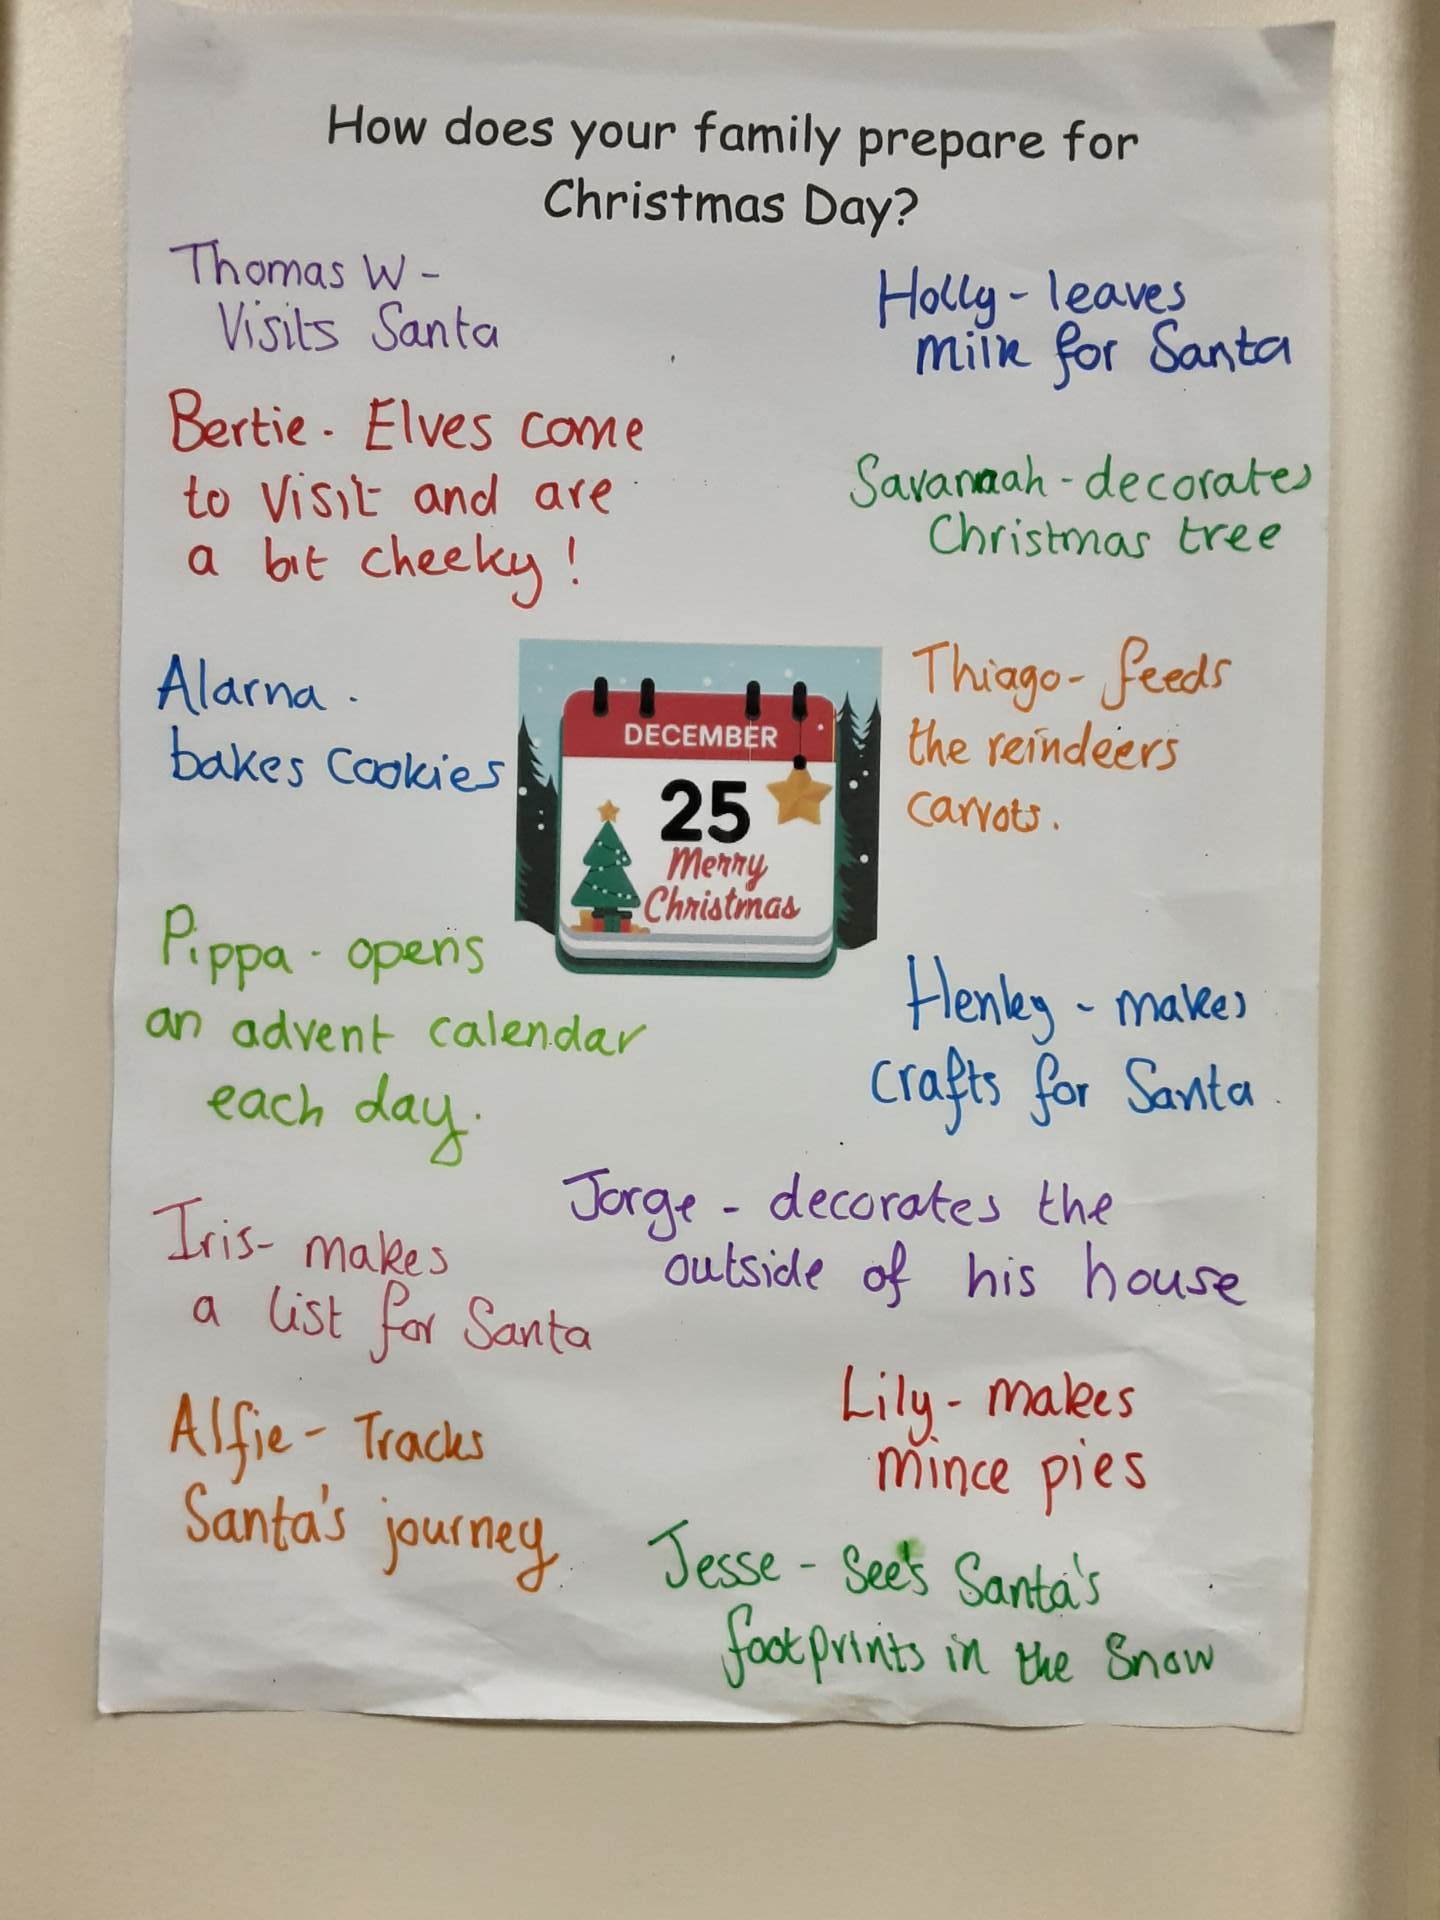 How does your family prepare for
Christmas Day?
Thomas W -
Visits Santa
Holly - leaves
milk for Santa
Bertie - Elves come
to visit and are
a bit cheeky!
Savannah - decorates
Christmas tree
Alarna -
bakes cookies
DECEMBER
25
Merry
Christmas
Thiago - feeds
the reindeers
carrots.
Pippa - opens
an advent calendar
each day.
Henley - makes
crafts for Santa.
Iris - makes
a list for Santa
Jorge - decorates the
outside of his house
Alfie - Tracks
Santa's journey
Lily - makes
mince pies
Jesse - See's Santa's
footprints in the Snow